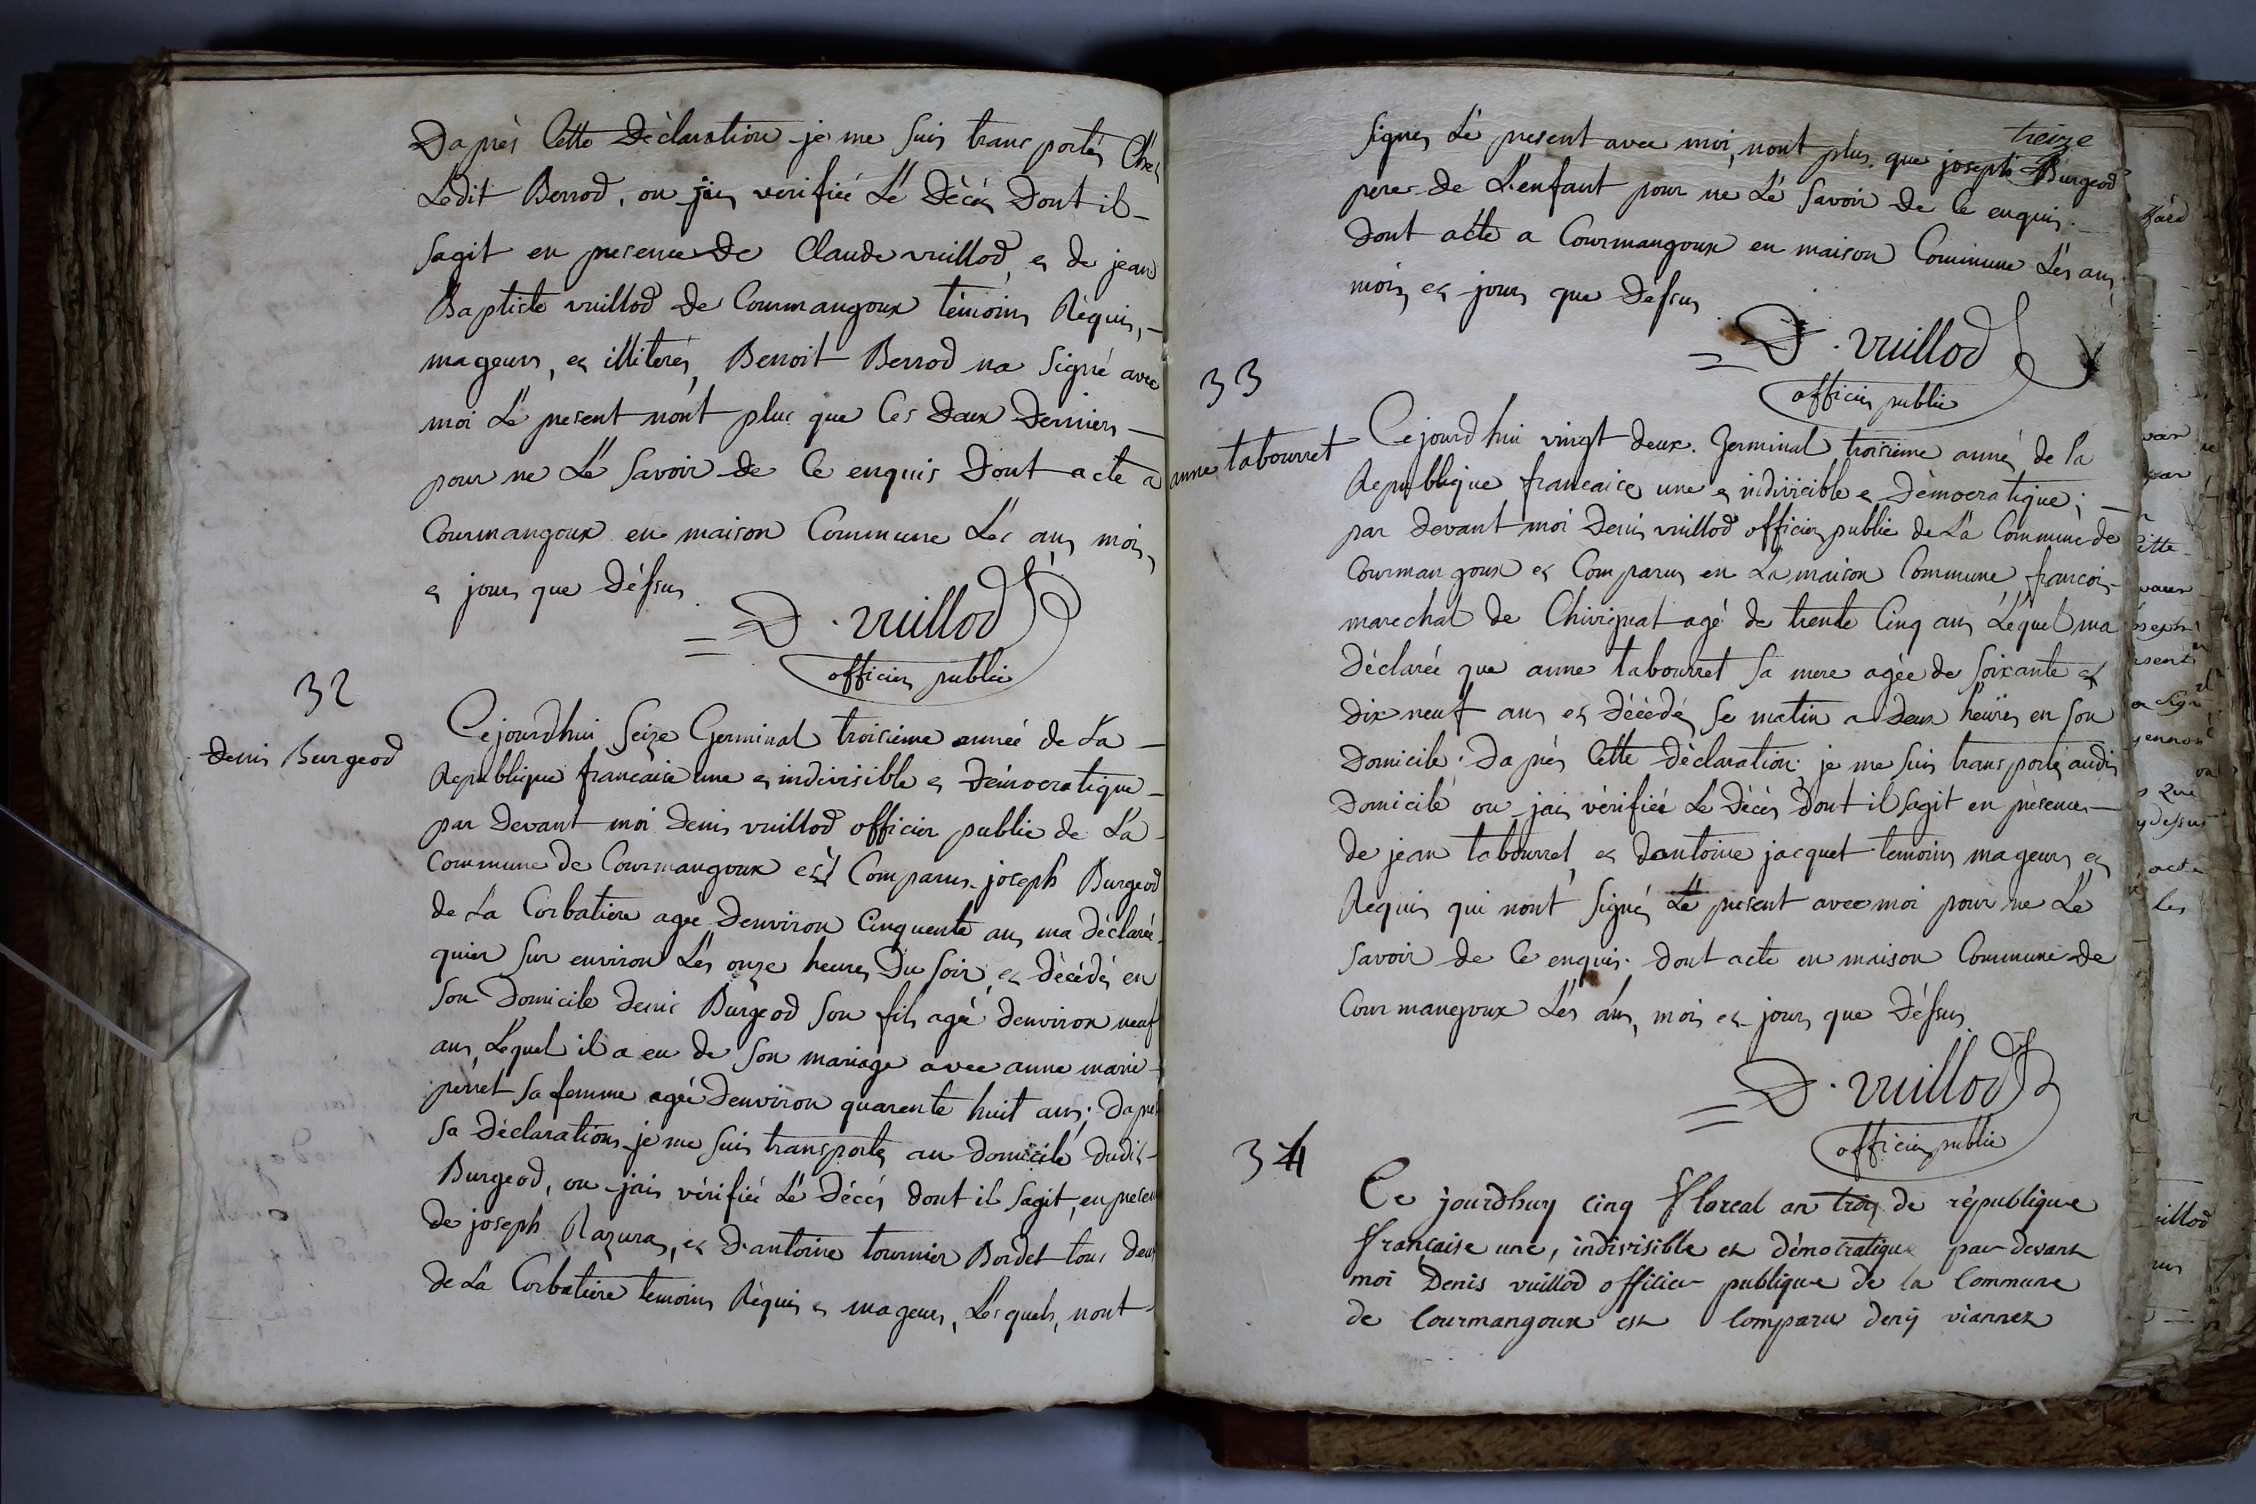 Dapres Cette Déclaration je me suis transportés Chés
Ledit Berrod, ou jais verifiéé Lé Décés Dont il
sagit en presence de Claude vuillod, es de jean
Baptiste vuillod de Courmangoux témoins Réquis,
mageurs, es illiterés, Benoit Berrod na signé avec
moi Lé present nont plus que Ces Deux Derniers
pour ne Lé savoir de Ce enquis Dont acte a
Courmangoux en maison Commune Lés ans mois,
es jours que Déssus
D. vuillod
officier public
32
denis Burgeod
Cejourdhui seize Germinal troisieme année de La
Republique francaise une es indivisible es Démocratique
par devant moi denis vuillod officier public de La
Commune de Courmangoux est Comparus joseph Burgeod
de La Corbatiere agée denviron Cinquente ans ma déclaréé
quier sur environ Lés onze heures Du soir, es décédé en
son Domicile denis Burgeod son fils agé denviron neuf
ans, Lequel il a eu de son mariage avec anne marie
perret sa femme agéé denviron quarente huit ans; Dapres
sa déclaration je me suis transportés au domicilé dudis
Burgeod, ou jais vérifiéé Lé Décés dont il sagit, en presen
de joseph Razuras, es d'antoine tournier Bordet tous deux
de La Corbatiere temoins Réquis es mageurs, Lesquels, nont
treize
signés Lé present avec moi, nont plus que joseph Burgeod
pere de L'enfant pour ne Lé savoir de Ce enquis.
Dont acte a Courmangoux en maison Commune Lés ans,
mois, es jours que déssus
D. vuillod
officier public
33
anne tabourret
Cejourdhui vingt deux Germinal troisieme anné de la
Republique francaice une es indivicible es Démocratique;
par devant moi Denis vuillod officier public de La Commune de
Courmangoux es Comparus en La maison Commune, francois
marechal de Chivignat agé de trente Cinq ans Léquel ma
Déclaréé que anne tabourret sa mere agée de soixante es
Dix neuf ans es décédés se matin a Deux heures en son
Domicile; Dapres Cette déclaration; je me suis transportés audis
Domicilé ou jais vérifiéé Le Décés Dont il sagit en présence
de jean tabourret, es dantoine jacquet temoins mageurs es
Requis qui nont signés Lé present avec moi pour ne Lé
savoir de Ce enquis. dont acte en maison Commune de
Courmangoux Lés ans, mois es jours que Déssus
D. vuillod
officier public
34
Ce jourdhuy cinq floreal an trois de république
française une, indivisible et démocratique par devant
moi Denis vuillod officier publique de la Commune
de Courmangoux est Comparu denis viannet